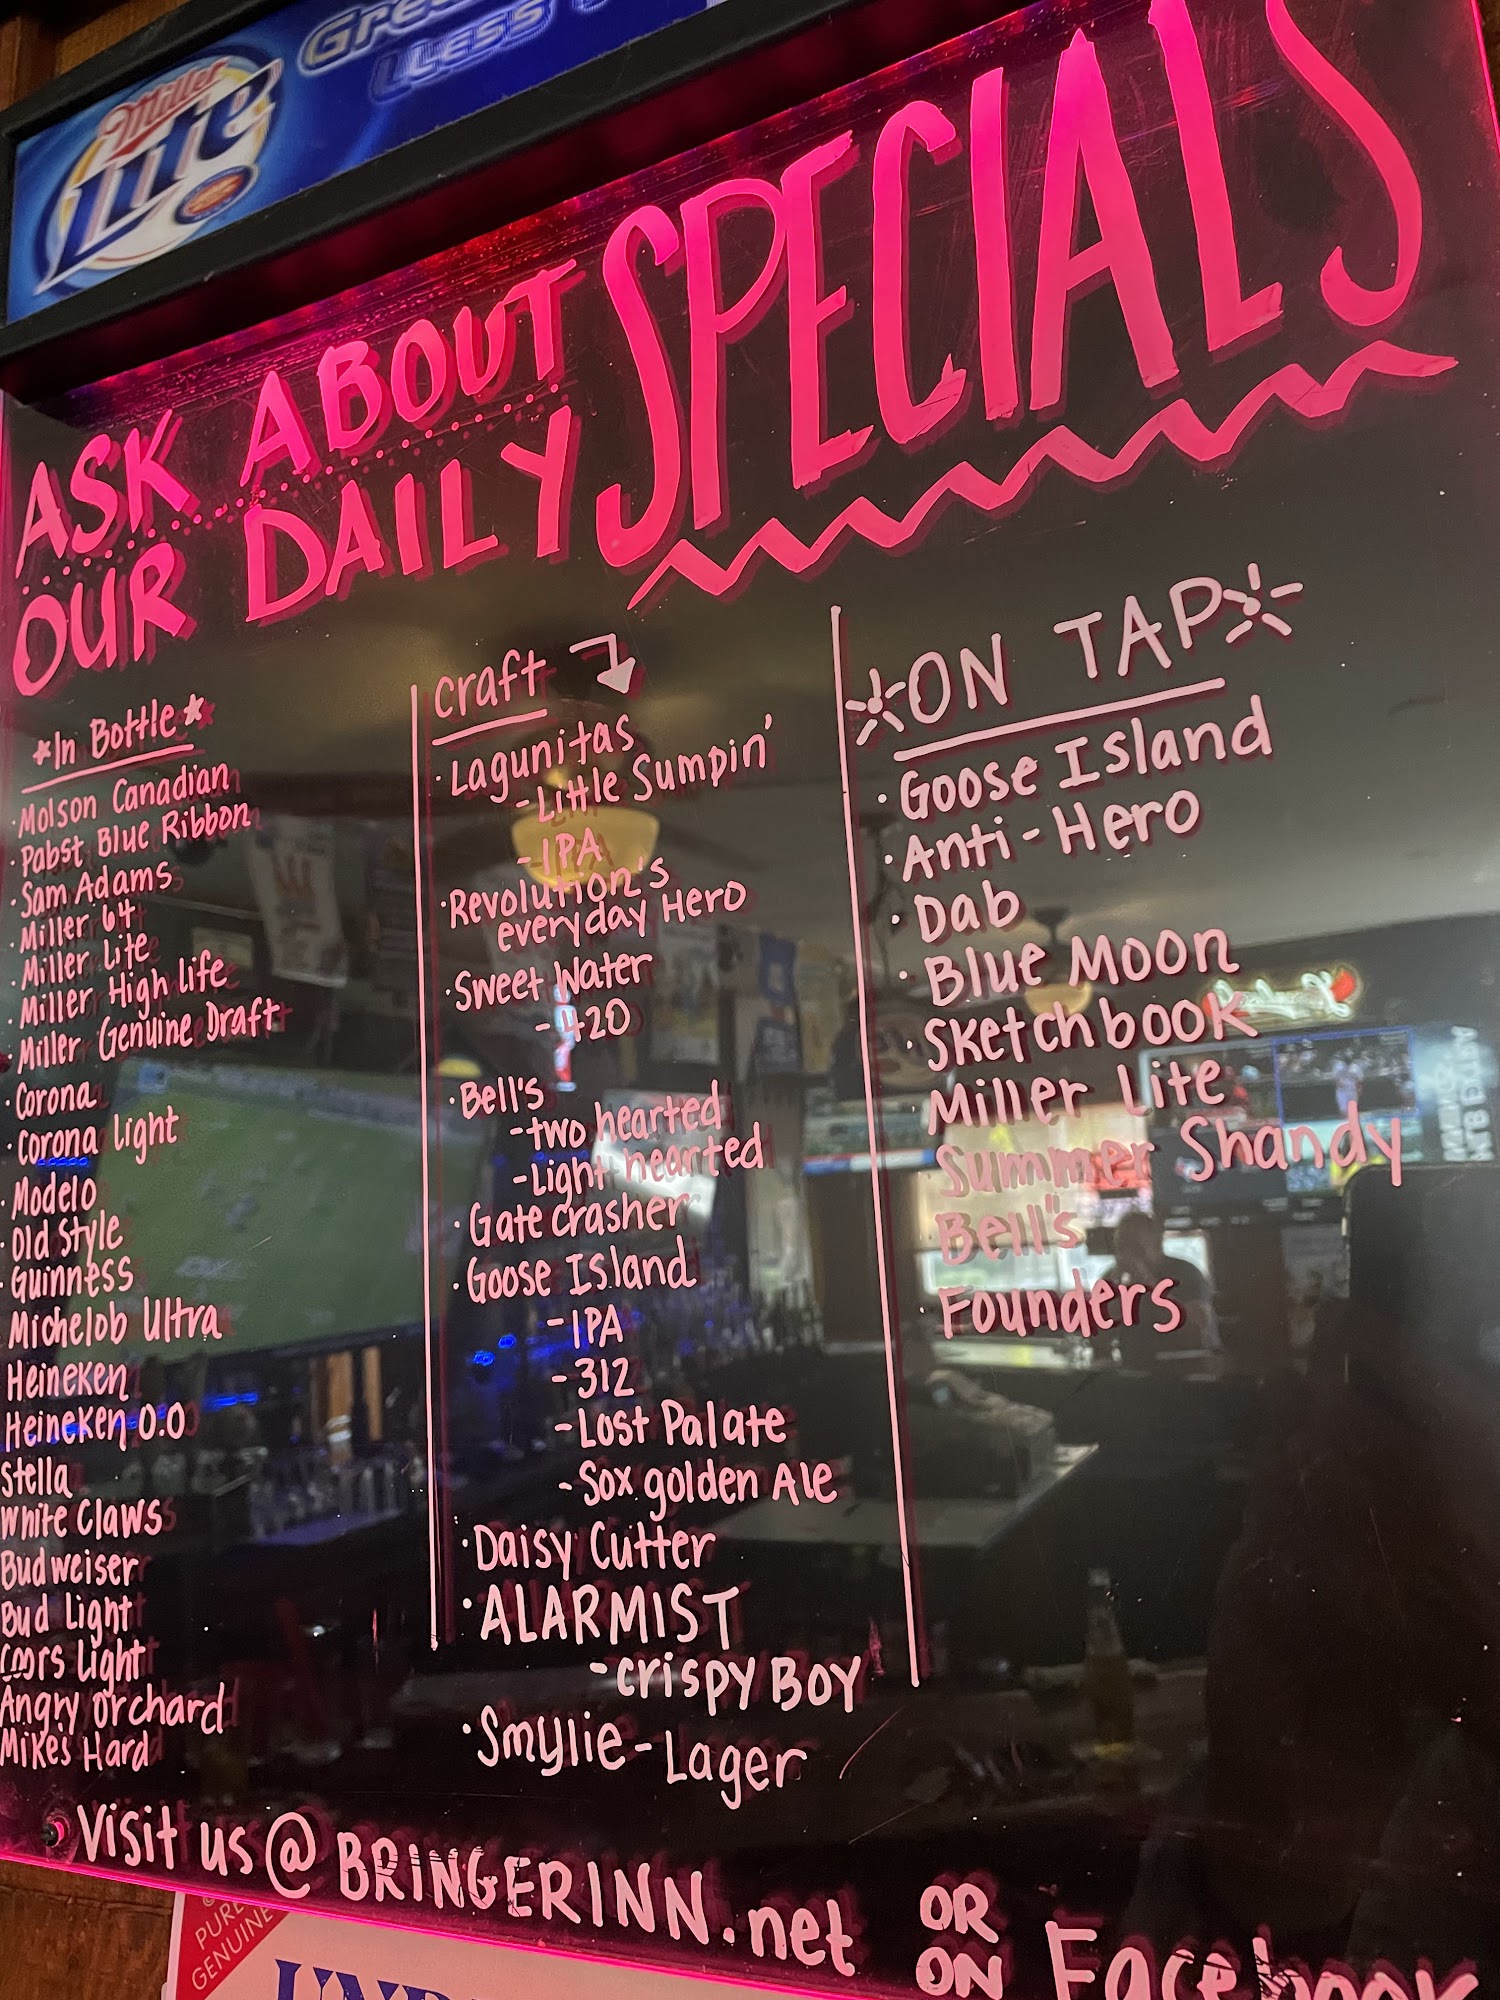 Miller
Lite
Gre
Less
ASK ABOUT
OUR DAILY
SPECIALS
*In Bottle*
·Molson Canadian
·Pabst Blue Ribbon
·Sam Adams
·Miller 64
·Miller Lite
·Miller High life
·Miller Genuine Draft
·Corona
·Corona light
·Modelo
·Old Style
·Guinness
Michelob Ultra
Heineken
Heineken 0.0
Stella
White Claws
Budweiser
Bud Light
Coors Light
Angry orchard
Mike's Hard
craft
·Lagunitas
-Little Sumpin'
-IPA
·Revolution's
everyday Hero
·Sweet Water
-420
·Bell's
-two hearted
-Light hearted
·Gatecrasher
·Goose Island
-IPA
-312
-Lost Palate
-Sox golden Ale
·Daisy Cutter
·ALARMIST
-crispy BOY
·Smylie-Lager
ON TAP
·Goose Island
·Anti-Hero
·Dab
·Blue Moon
·Sketchbook
·Miller Lite
Summer Shandy
Bell's
Founders
Visit us @ BRINGERINN.net
OR
ON
Facebook
PURE
GENUINE